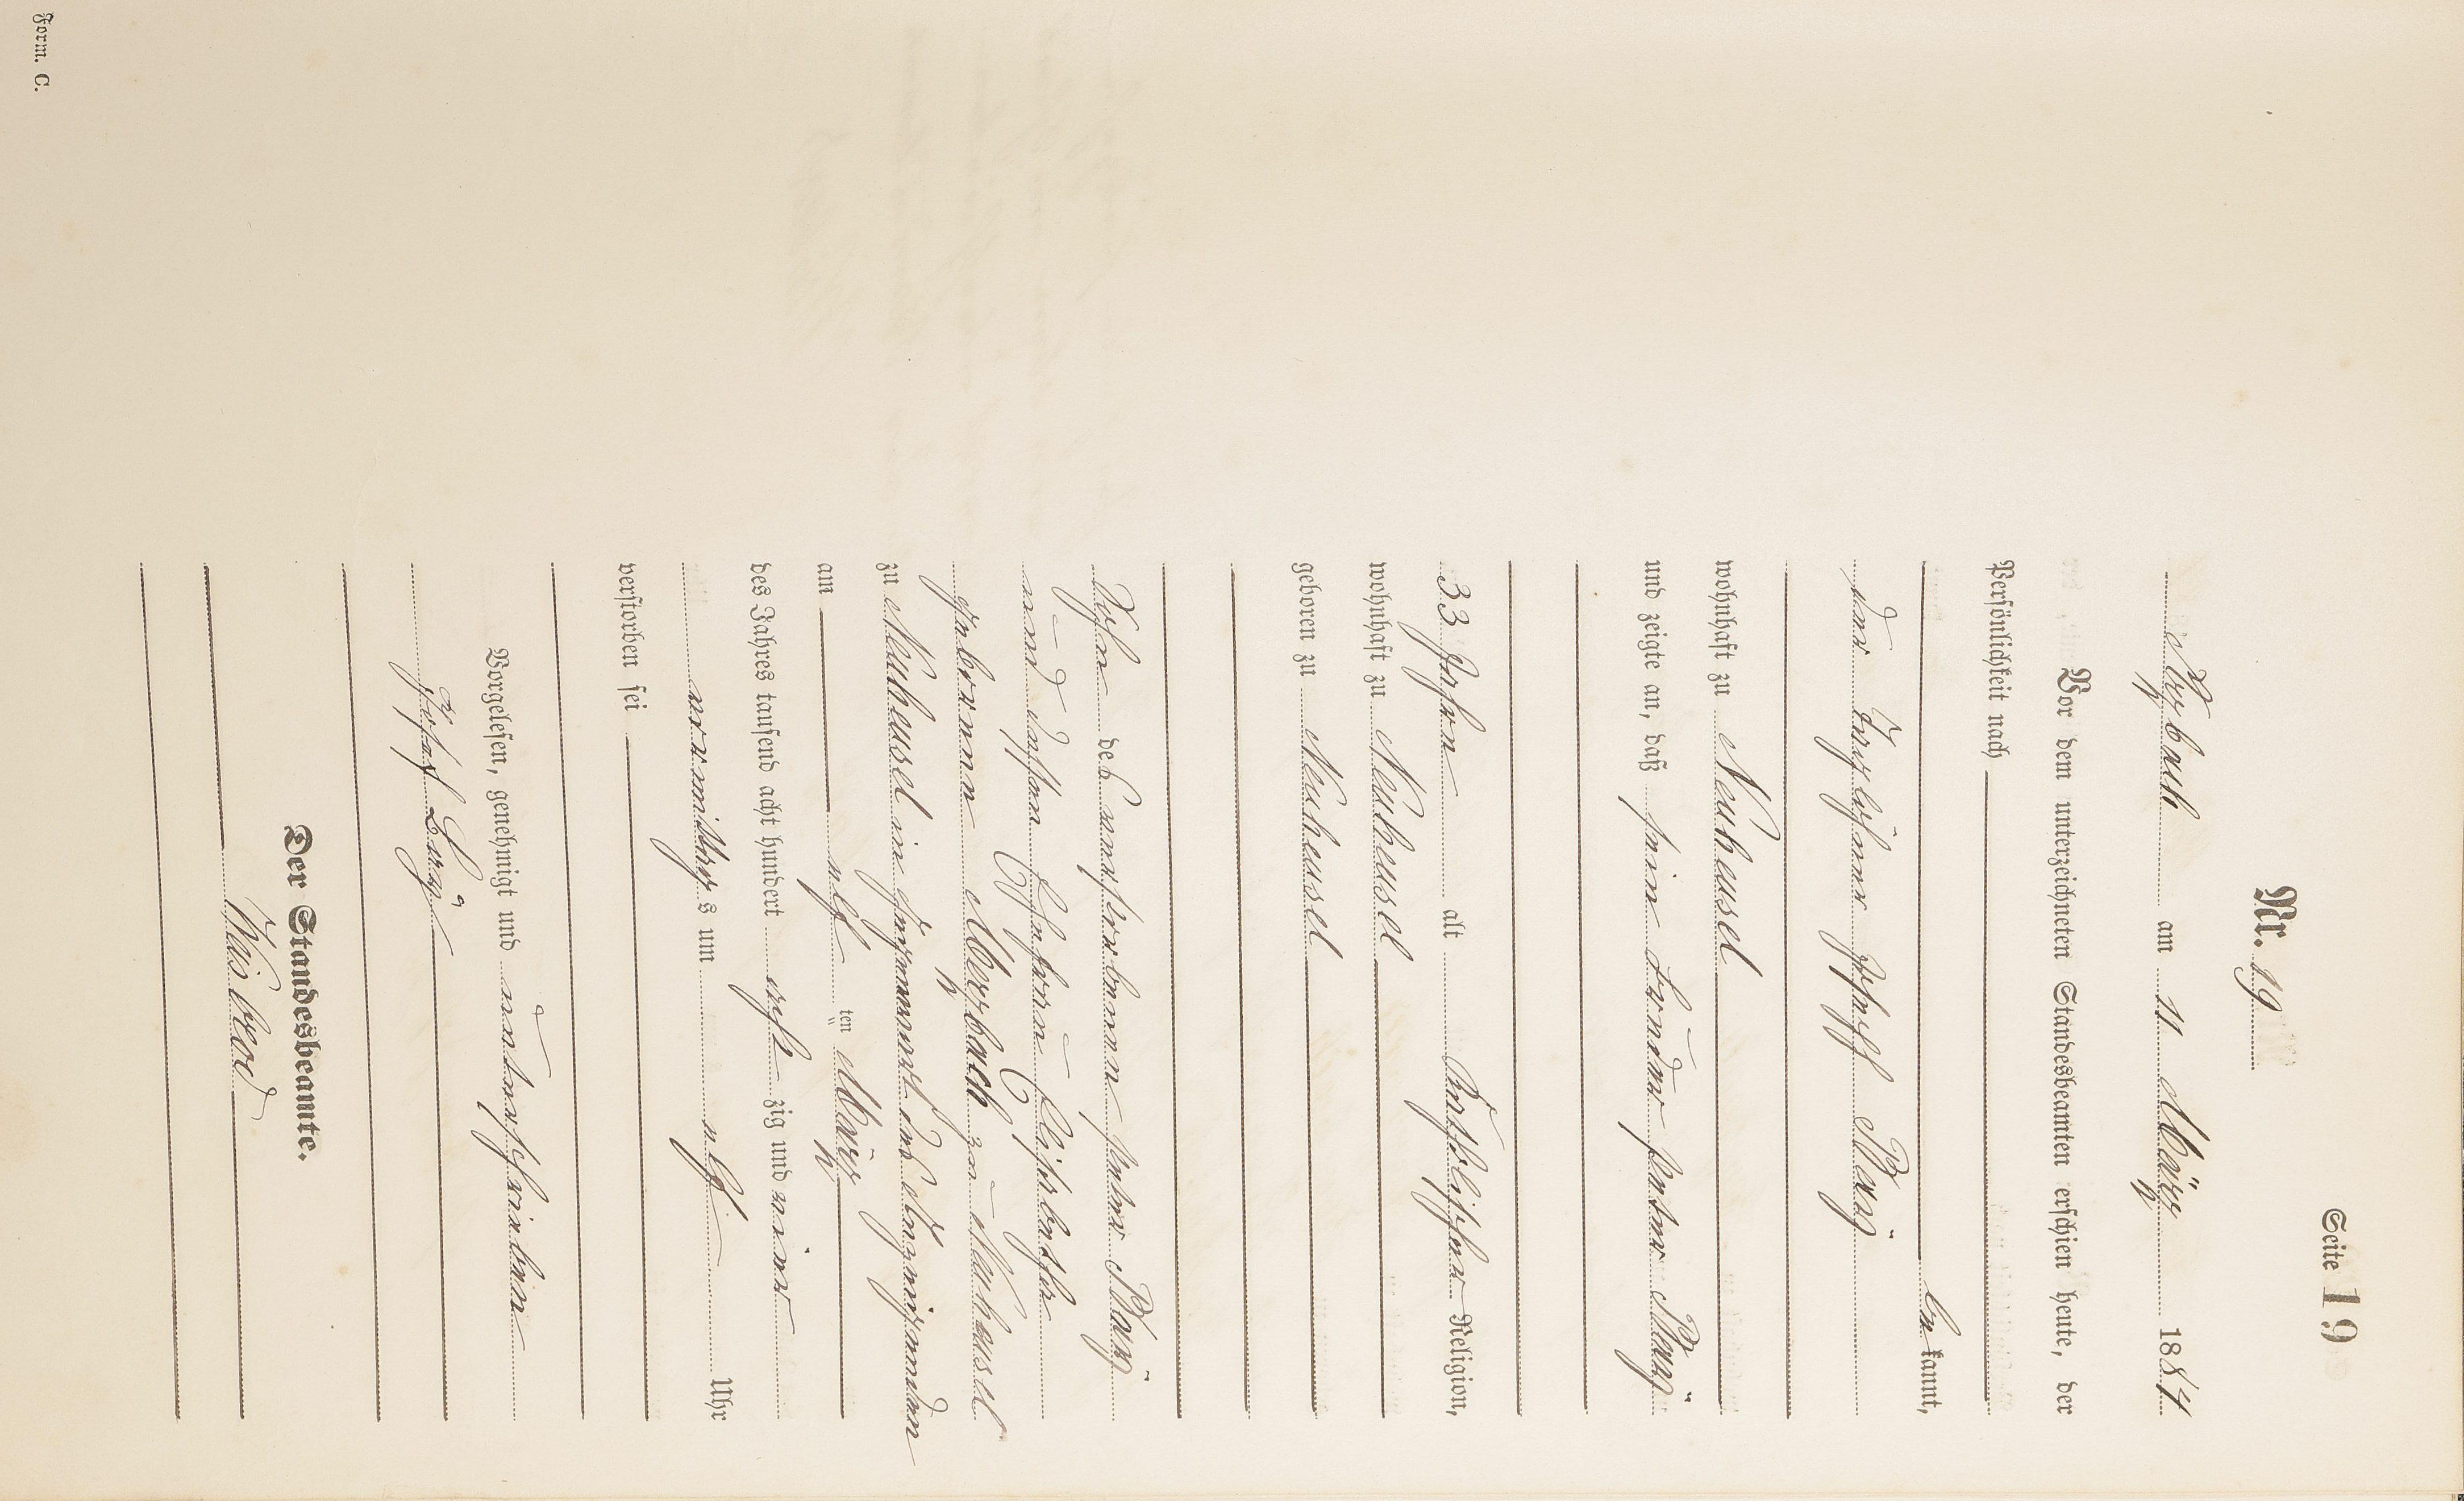 Seite 19
Nr. 19
am 11 März 1884
Vor dem unterzeichneten Standesbeamten erschien heute, der
Persönlichkeit nach
be kannt,
der Taglöhner Joseph
wohnhaft zu Neuheusel
und zeigte an, daß sein Bruder Peter
33 Jahre alt katholischer Religion,
wohnhaft zu Neuheusel
geboren zu Neuheusel
Sohn des verstorbenen Peter
und dessen Ehefrau Elisabetha
geborenen zu Neuheusel
zu Neuheusel in Gegenwart des Anzeigenden
am elf ten März
des Jahres tausend acht hundert acht zig und vier
vormittag s um elf Uhr
verstorben sei
Vorgelesen, genehmigt und unterschrieben
Josef
Der Standesbeamte.
Form. C.